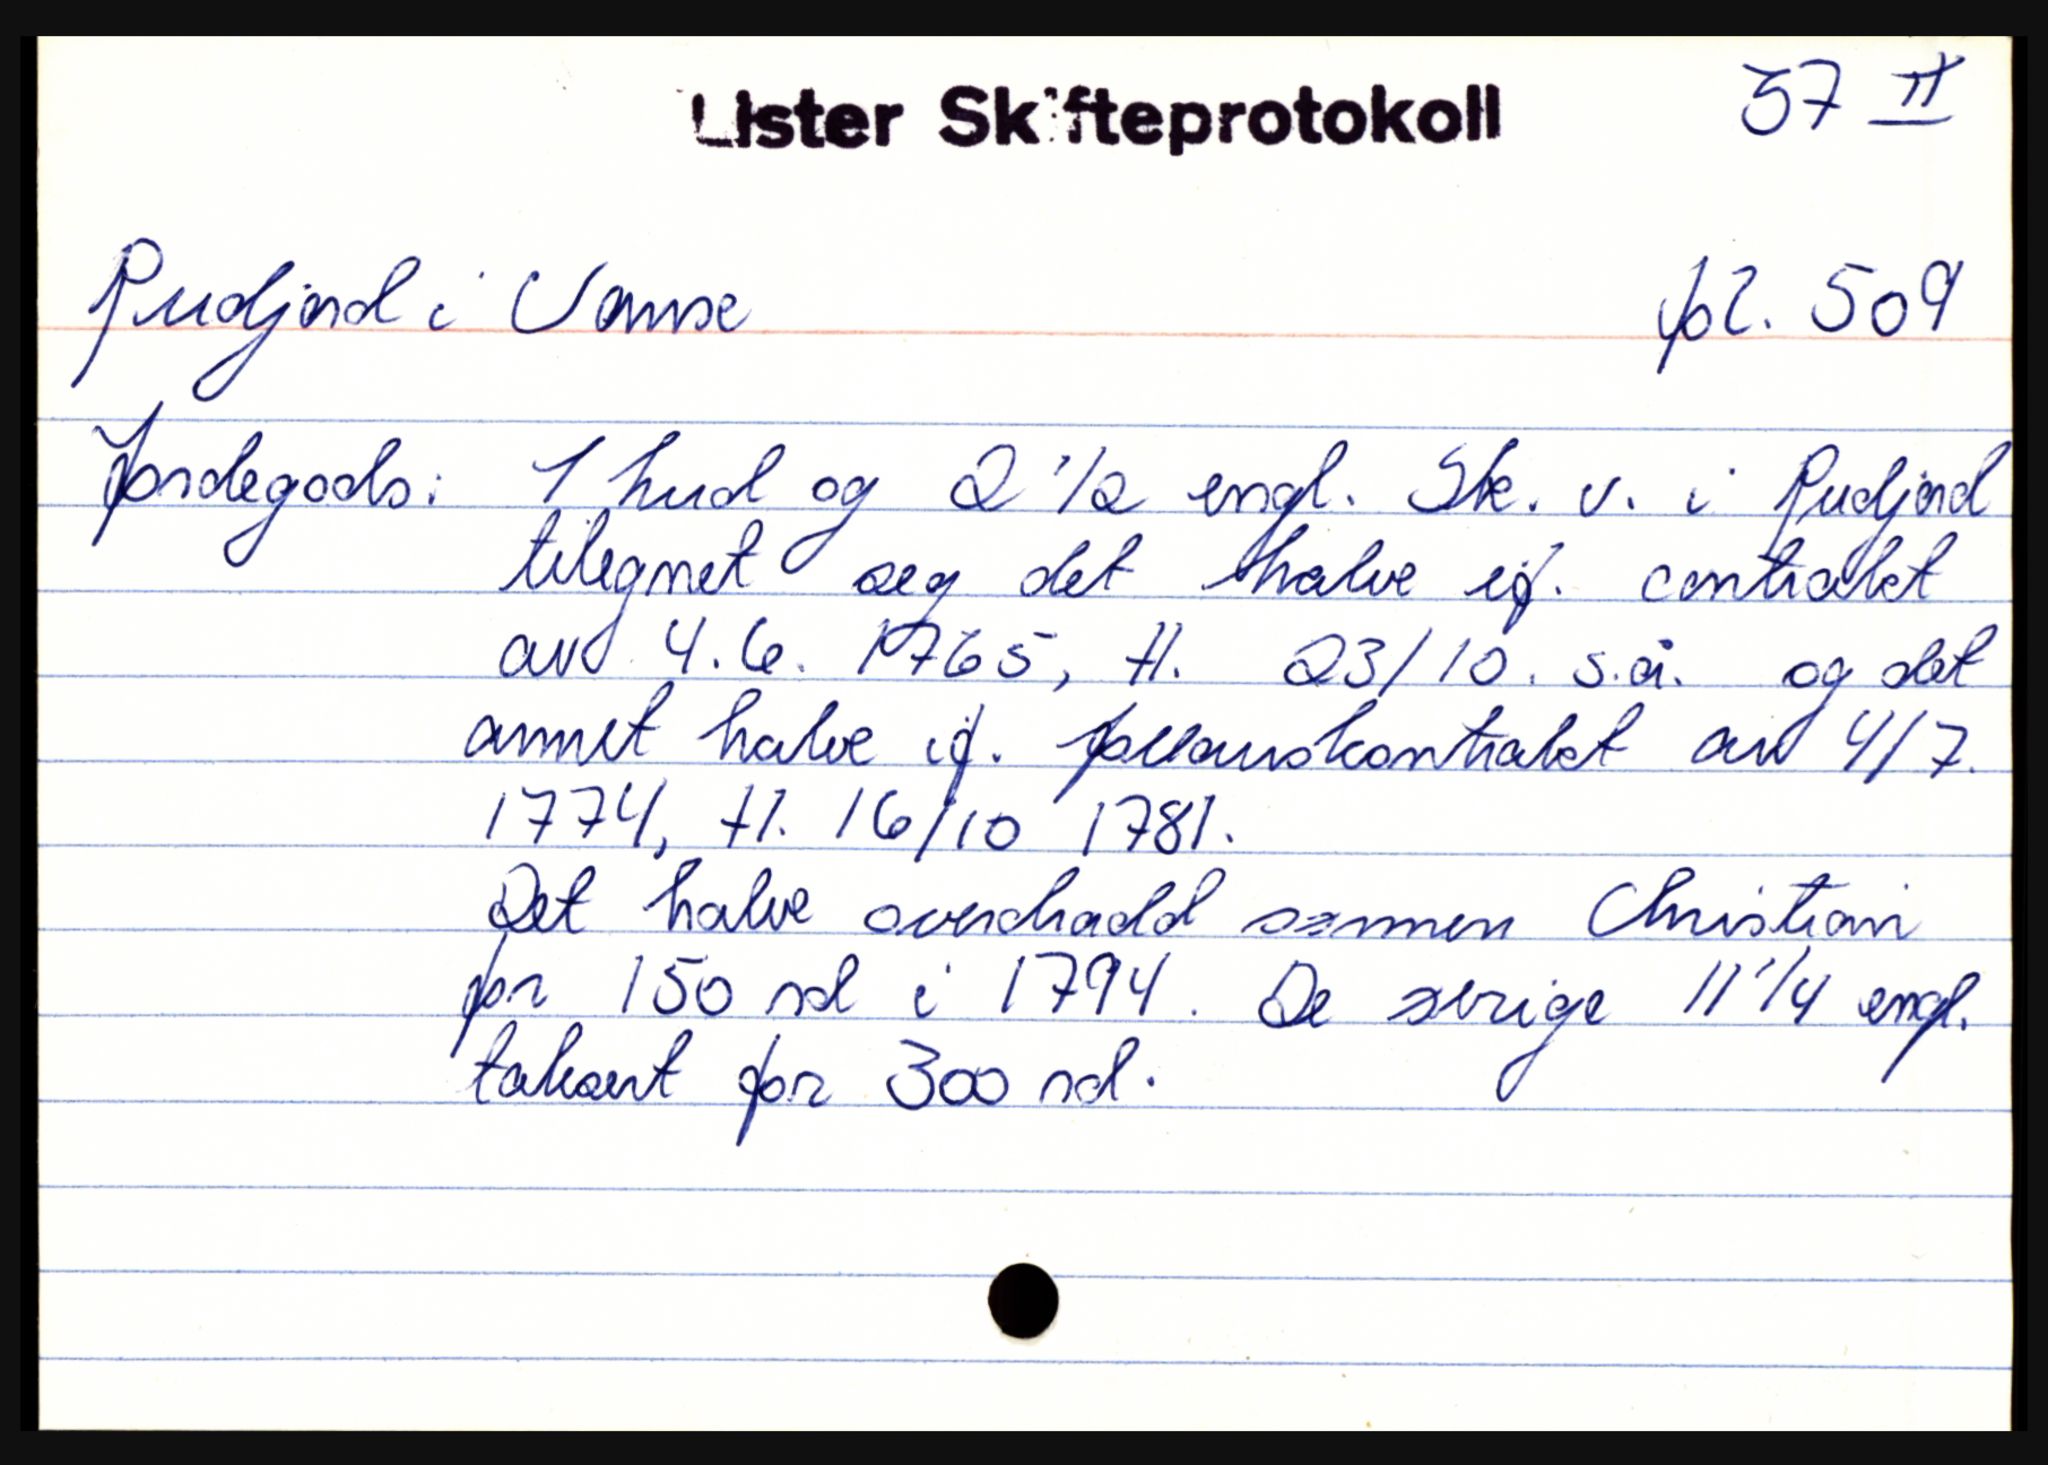 Lister Skifteprotokoll
37 II
Rudjord i Vanse
fol. 509
Jordegods: 1 hud og 2 1/2 engl. Sk. v. i Rudjord
tilegnet seg det halve if. contrakt
av 4.6. 1765, tl. 23/10. s.å. og det
annet halve if. follauskontrakt av 4/7.
1774, tl. 16/10 1781.
Det halve overdradd sønnen Christian
for 150 rd i 1794. De øvrige 11 1/4 engl.
taksert for 300 rd.